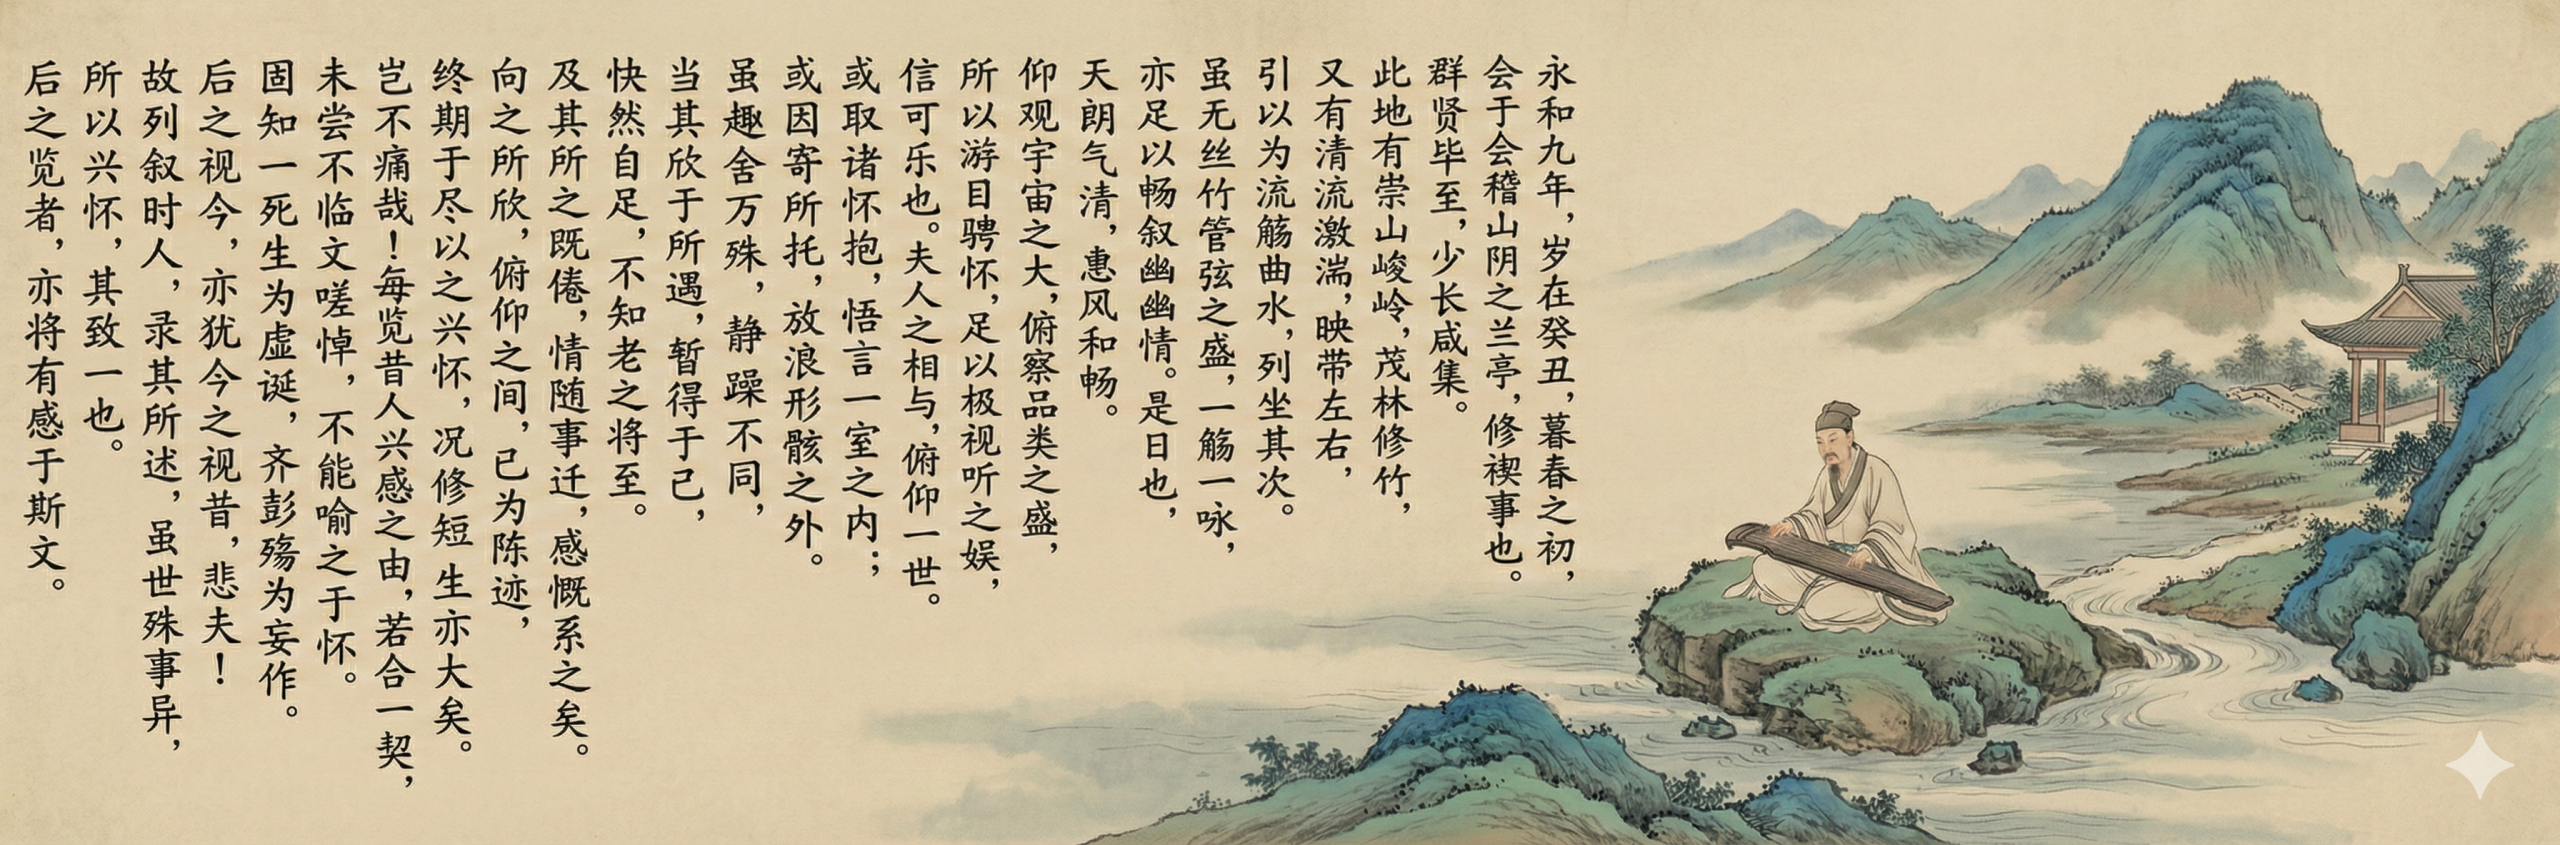 永和九年，岁在癸丑，暮春之初，
会于会稽山阴之兰亭，修禊事也。
群贤毕至，少长咸集。
此地有崇山峻岭，茂林修竹，
又有清流激湍，映带左右，
引以为流觞曲水，列坐其次。
虽无丝竹管弦之盛，一觞一咏，
亦足以畅叙幽幽情。是日也，
天朗气清，惠风和畅。
仰观宇宙之大，俯察品类之盛，
所以游目骋怀，足以极视听之娱，
信可乐也。夫人之相与，俯仰一世。
或取诸怀抱，悟言一室之内；
或因寄所托，放浪形骸之外。
虽趣舍万殊，静躁不同，
当其欣于所遇，暂得于己，
快然自足，不知老之将至。
及其所之既倦，情随事迁，感慨系之矣。
向之所欣，俯仰之间，已为陈迹，
终期于尽以之兴怀，况修短生亦大矣。
岂不痛哉！每览昔人兴感之由，若合一契，
未尝不临文嗟悼，不能喻之于怀。
固知一死生为虚诞，齐彭殇为妄作。
后之视今，亦犹今之视昔，悲夫！
故列叙时人，录其所述，虽世殊事异，
所以兴怀，其致一也。
后之览者，亦将有感于斯文。